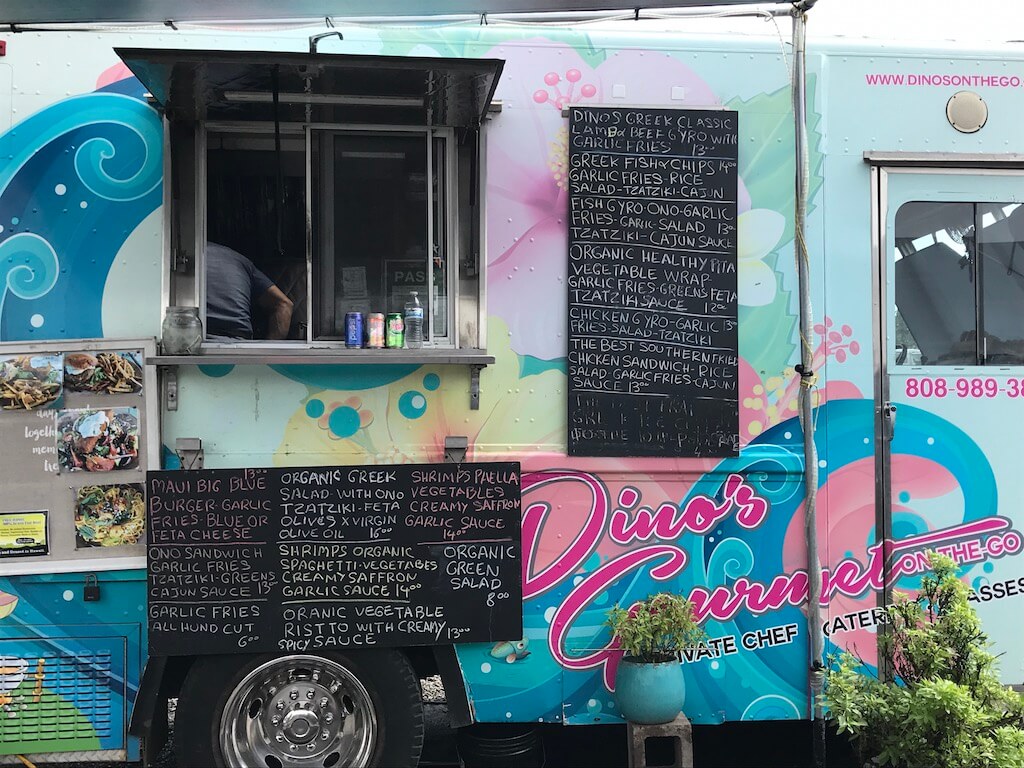 WWW.DINOSONTHEGO.
DINO'S GREEK CLASSIC
LAMB & BEEF GYRO WITH
GARLIC FRIES 13.00
GREEK FISH & CHIPS 14.00
GARLIC FRIES-RICE
SALAD-TZATZIKI-CAJUN
FISH GYRO-ONO-GARLIC
FRIES-GARLIC-SALAD 13.00
TZATZIKI-CAJUN SAUCE
ORGANIC HEALTHY PITA
VEGETABLE WRAP
GARLIC FRIES-GREENS FETA
TZATZIH SAUCE 12.00
CHICKEN GYRO-GARLIC 13.00
FRIES-SALAD-TZATZIKI
THE BEST SOUTHERN FRIED
CHICKEN SANDWICH-RICE
SALAD-GARLIC FRIES-CAJUN
SAUCE 13.00
PAS
808-989-38
together
MAUI BIG BLUE 13.00
BURGER-GARLIC
FRIES-BLUE OR
FETA CHEESE
ONO SANDWICH
GARLIC FRIES
TZATZIKI-GREENS
CAJUN SAUCE 13.00
GARLIC FRIES
ALL HUND CUT
6.00
ORGANIC GREEK
SALAD-WITH ONO
TZATZIKI-FETA
OLIVES X VIRGIN
OLIVE OIL 16.00
SHRIMPS ORGANIC
SPAGHETTI-VEGETABES
CREAMY SAFFRON
GARLIC SAUCE 14.00
ORANIC VEGETABLE
RISTTO WITH CREAMY 13.00
SPICY SAUCE
SHRIMPS PAELLA
VEGETABLES
CREAMY SAFFRON
GARLIC SAUCE
14.00
ORGANIC
GREEN
SALAD
8.00
Dino's
Gourmet
ON-THE-GO
IVATE CHEF CATER ASSES